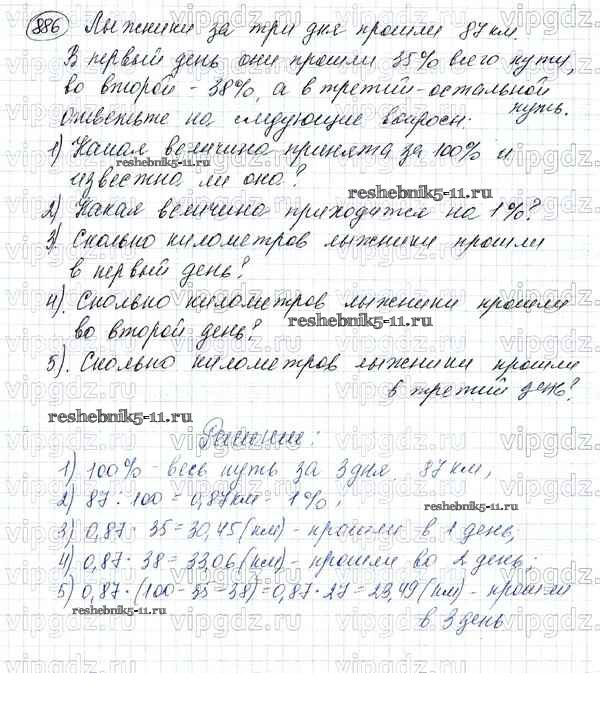 886 Лыжники за три дня прошли 87 км.
В первый день они прошли 35% всего пути,
во второй - 38%, а в третий - остальной
путь.
Ответьте на следующие вопросы:
1) Какая величина принята за 100% и
reshebnik5-11.ru
известна ли она?
reshebnik5-11.ru
2) Какая величина приходится на 1%?
3) Сколько километров лыжники прошли
в первый день?
4). Сколько километров лыжники прошли
во второй день?
reshebnik5-11.ru
5). Сколько километров лыжники прошли
в третий день?
reshebnik5-11.ru
Решение:
1) 100% - весь путь за 3 дня, 87 км,
2) 87 : 100 = 0,87 км - 1%,
3) 0,87 · 35 = 30,45 (км) - прошли в 1 день,
4) 0,87 · 38 = 33,06 (км) - прошли во 2 день;
5) 0,87 · (100 - 35 - 38) = 0,87 · 27 = 23,49 (км) - прошли
reshebnik5-11.ru
в 3 день
vipgdz.ru